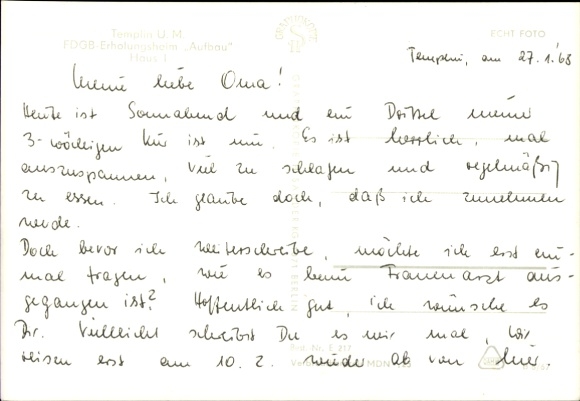 Templin U. M.
FDGB-Erholungsheim „Aufbau“
Haus 1
ECHT FOTO
Templin, am 27.1.68
Meine liebe Oma!
Heute ist Sonnabend und ein Drittel meiner
3-wöchigen Kur ist um. Es ist herrlich, mal
auszuspannen, viel zu schlafen und regelmäßig
zu essen. Ich glaube doch, daß ich zunehmen
werde.
Doch bevor ich weiterschreibe, möchte ich erst ein-
mal fragen, wie es beim Frauenarzt aus-
gegangen ist? Hoffentlich gut, ich wünsche es
Dir. Vielleicht schreibst Du es mir mal, wir
reisen erst am 10. 2. wieder ab von hier.